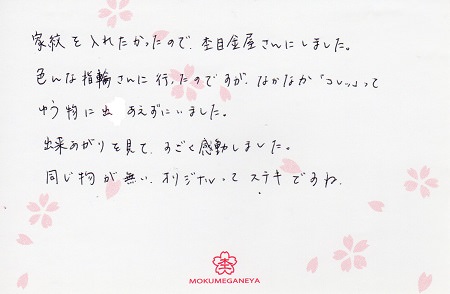 家紋を入れたかったので、杢目金屋さんにしました。
色んな指輪さんに行ったのですが、なかなか「コレッ」って
ゆう物に出 あえずにいました。
出来あがりを見て、すごく感動しました。
同じ物が無い、オリジナルってステキですね。
MOKUMEGANEYA